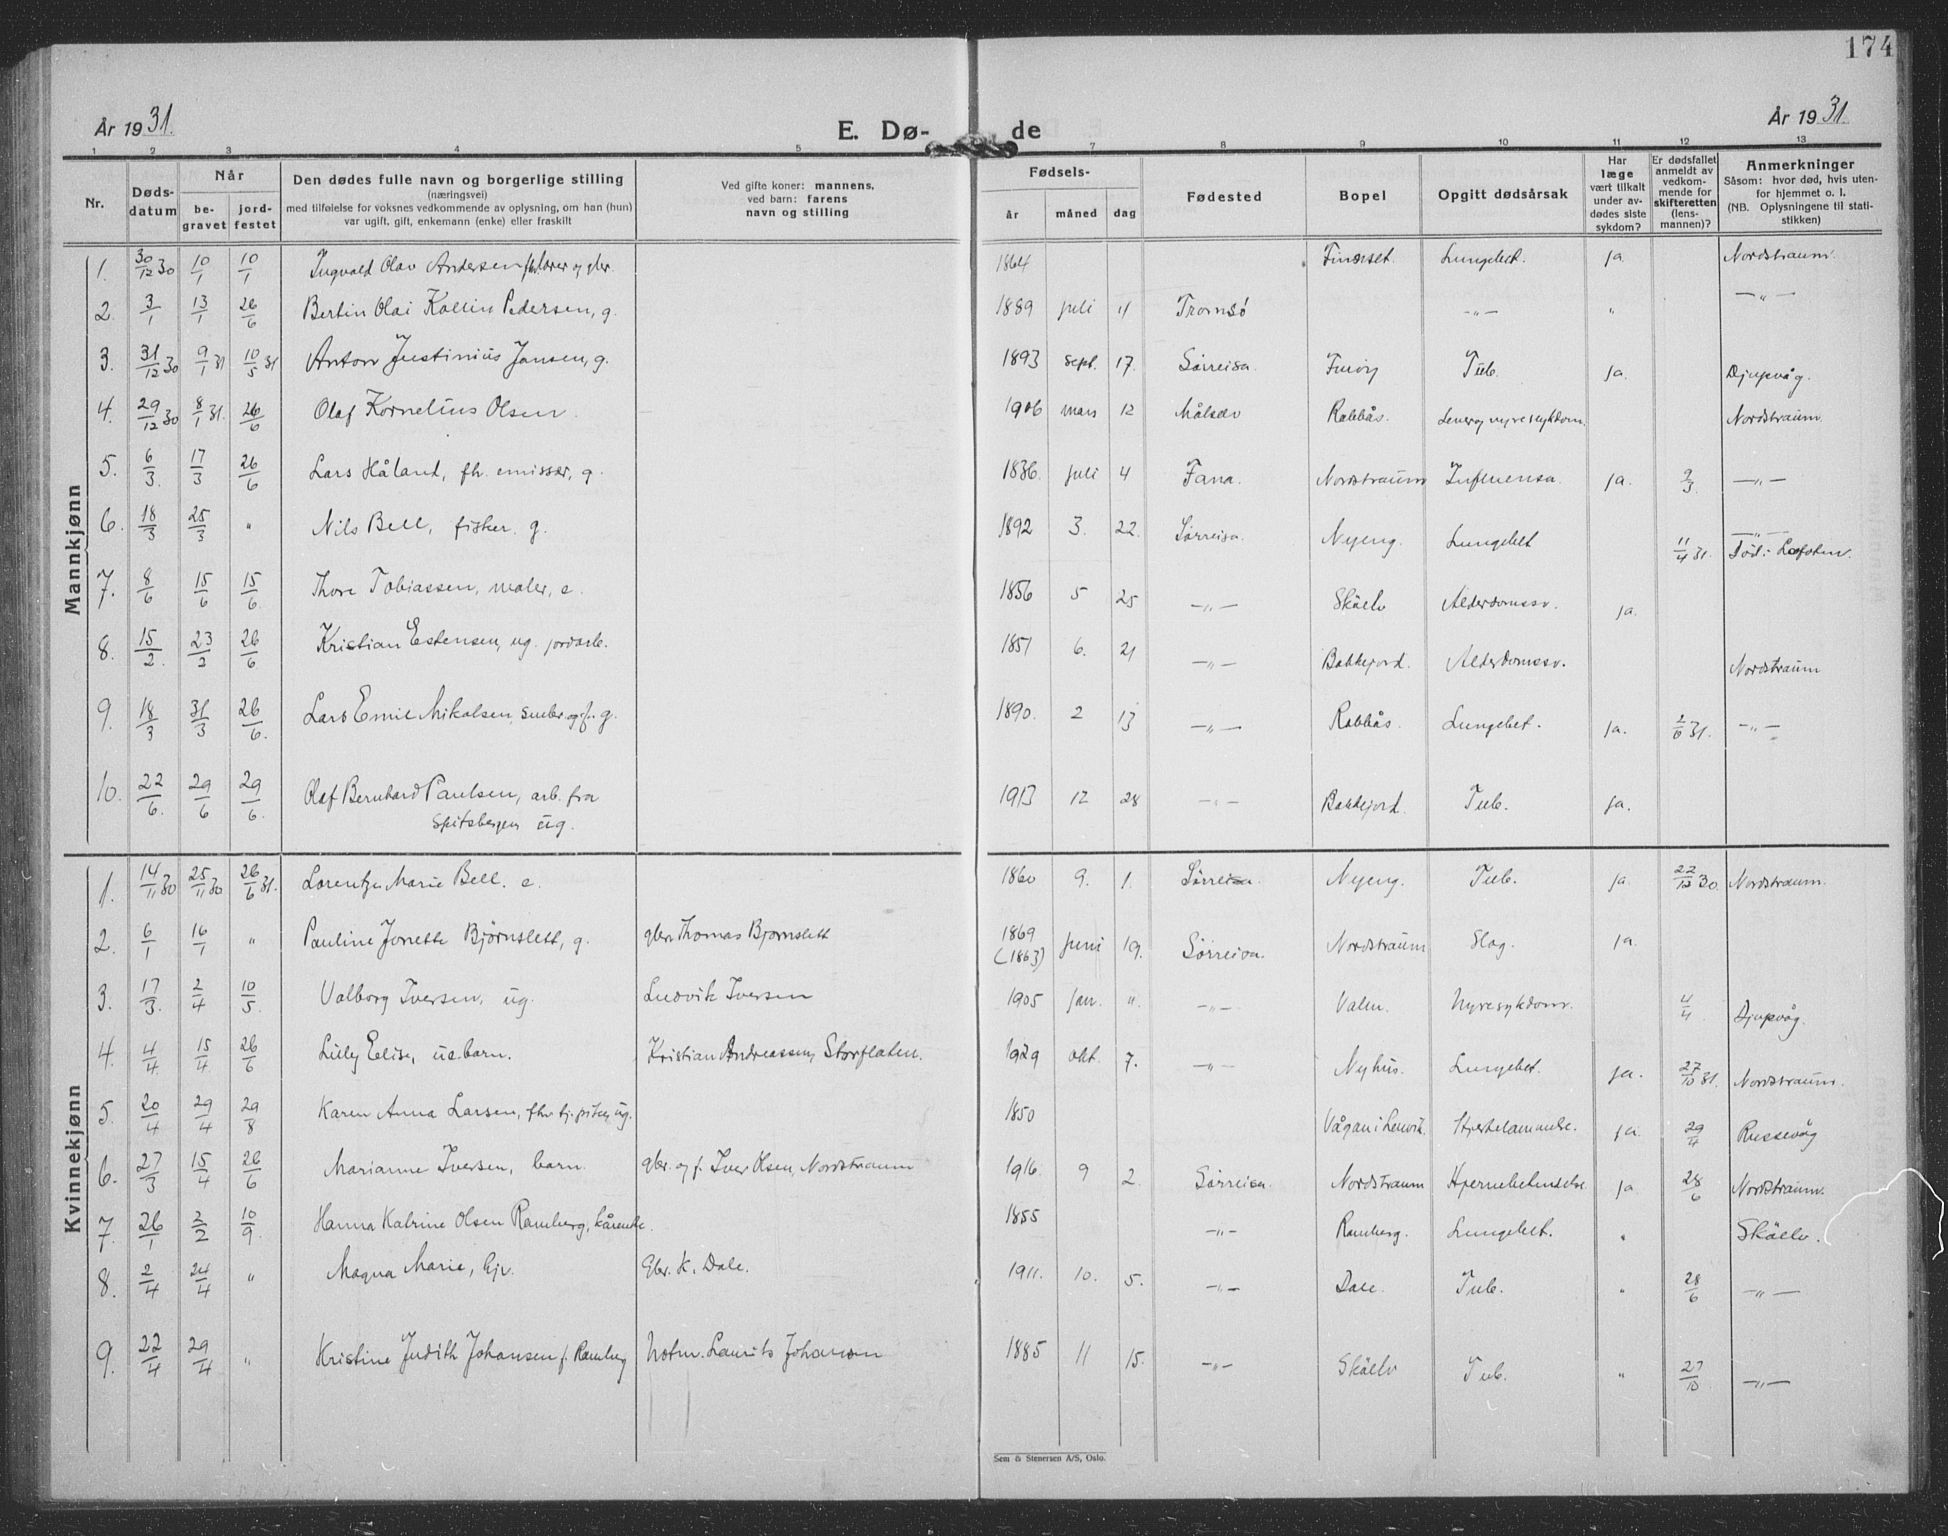 174
År 1931.
E. Dø- de
År 1931.
1 2 3 4 5 7 8 9 10 11 12 13
Nr.
Døds-
datum
Når
be-
gravet
jord-
festet
Den dødes fulle navn og borgerlige stilling
(næringsvei)
med tilføielse for voksnes vedkommende av oplysning, om han (hun)
var ugift, gift, enkemann (enke) eller fraskilt
Ved gifte koner: mannens,
ved barn: farens
navn og stilling
Fødsels-
år måned dag
Fødested
Bopel
Opgitt dødsårsak
Har
læge
vært tilkalt
under av-
dødes siste
sykdom?
Er dødsfallet
anmeldt av
vedkom-
mende for
skifteretten
(lens-
mannen)?
Anmerkninger
Såsom: hvor død, hvis uten-
for hjemmet o. l.
(NB. Oplysningene til stati-
stikken)
Mannkjønn
1. 30/12 30 10/1 10/1 Ingvald Olav Andersen 1864 Finnset. Lungebet. ja. Nordstraum.
2. 3/1 13/1 26/6 Bertin Olai Kollin Pedersen, g. 1889 juli 4 Tromsø -"- " -"-
3. 31/12 30 9/1 31 10/5 31 Anton Justinius Jansen, g. 1893 sept. 17. Sørreisa. Finøy Tub. ja. Djupvåg.
4. 29/12 30 8/1 31. 26/6 Olaf Kornelius Olsen. 1906 mars 12 Målselv Rabbås. Lever og nyresykdom. Nordstraum.
5. 6/3. 17/3 26/6 Lars Håland, fh. emissær, g. 1836 juli 4 Fana. Nordstraum Influensa. ja. 9/3. -"-
6. 18/3 25/3 " Nils Bell, fisker. g. 1892 3. 22. Sørreisa. Nyeng. Lungebet 11/4 31. -"-
Død: Lofoten.
7. 8/6 15/6 15/6. Thore Tobiassen, maler, e. 1856 5 25 -"- Skøelv Alderdomssv. ja.
8. 15/2. 23/2 26/6 Kristian Estensen, ug. jordarb. 1851 6. 21 -"- Bakkejord. Alderdomssv. Nordstraum
9. 18/3 31/3 26/6. Lars Emil Mikalsen, småbr. og f. g. 1890. 2 13 -"- Rabbås. Lungebet. ja. 2/6 31. -"-
10. 22/6. 29/6 29/6. Olaf Bernhard Paulsen, arb. fra 1913 12 28 -"- Bakkejord. Tub. ja.
Spitsbergen ug.
Kvinnekjønn
1. 14/11 30 25/11 30 26/6 31. Lorentza Marie Bell. e. 1860 9. 1. Sørreisa. Nyeng. Tub. ja 22/12 30. Nordstraum.
2. 6/1 16/1 " Pauline Jonette Bjørnslett, g. gbr. Thomas Bjørnslett 1869 (1863) juni 19. Sørreisa. Nordstraum Slag. ja.
3. 17/3. 2/4 10/5. Valborg Iversen, ug. Ludvik Iversen 1905 jan. " -"- Valen. Nyresykdom. 4/4. Djupvåg.
4. 4/4. 15/4. 26/6 Lilly Elise, u.e. barn. Kristian Andreassen, Storflaten. 1929 okt. 7. -"- Nyhus. Lungebet. ja. 27/10 31. Nordstraum.
5. 20/4 29/4 29/8 Karen Anna Larsen, fhv. tj.pike, ug. 1850 Vågan i Lenvik. Hjertelammelse. ja. 29/4 Russevåg
6. 27/3 15/4 26/6 Marianne Iversen, barn. gbr. og f. Iver Olsen, Nordstraum 1916. 9 2. Sørreisa. Nordstraum Hjernebetendelse ja 28/6 Nordstraum.
7. 26/1 2/2 10/9. Hanna Katrine Olsen Ramberg, kårenke. 1855 -"- Ramberg. Lungebet. " Skøelv.
8. 2/4 24/4 " Magna Marie, hjv. Gbr. K. Dale. 1911. 10. 5. -"- Dale. Tub. " 28/6 -"-
9. 22/4 29/4 " Kristine Judith Johansen f. Ramberg Hotm. Laurits Johansen 1885 11 15. -"- Skøelv Tub. " 27/10 -"-
Sem & Stenersen A/S, Oslo.